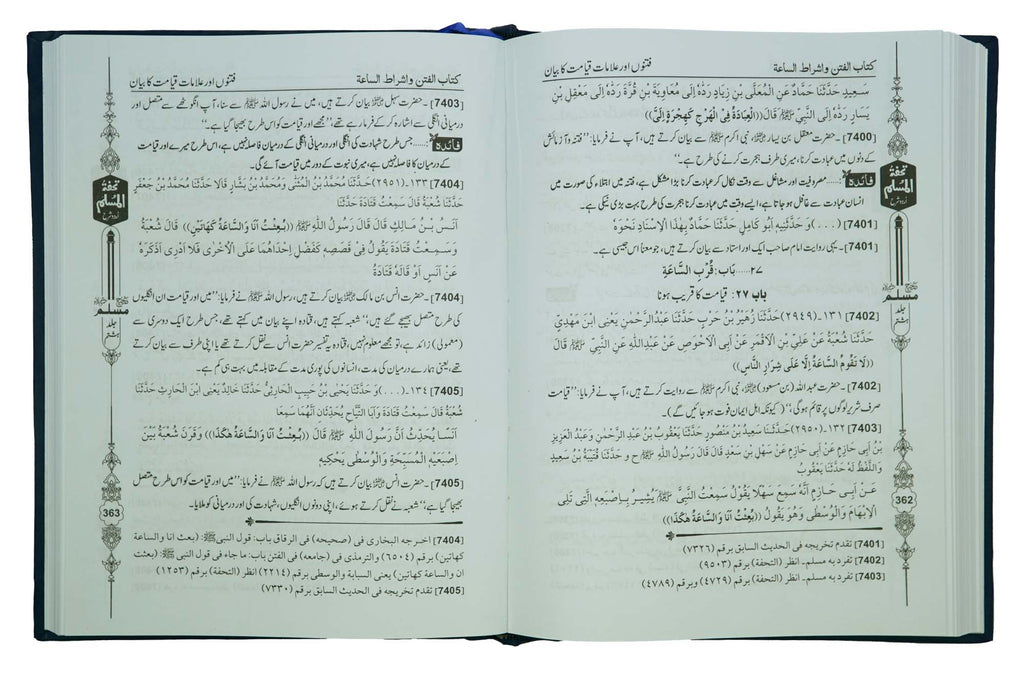 فتنوں اور علامات قیامت کا بیان
کتاب الفتن واشراط الساعة
سَعِيدٍ حَدَّثَنَا حَمَّادٌ عَنِ الْمُعَلَّى بْنِ زِيَادٍ رَدَّهُ إِلَى مُعَاوِيَةَ بْنِ قُرَّةَ رَدَّهُ إِلَى مَعْقِلِ بْنِ
يَسَارٍ رَدَّهُ إِلَى النَّبِيِّ ﷺ قَالَ((الْعِبَادَةُ فِي الْهَرْجِ كَهِجْرَةٍ إِلَيَّ))
[7400]۔ حضرت معقل بن یسار رضی اللہ عنہ، نبی اکرم ﷺ سے بیان کرتے ہیں، آپ نے فرمایا: ’’فتنہ و آزمائش
کے دنوں میں عبادت کرنا، میری طرف ہجرت کرنے کی طرح ہے۔‘‘
فائدہ:......مصروفیت اور مشاغل سے وقت نکال کر عبادت کرنا بڑا مشکل ہے، فتنہ میں ابتلاء کی صورت میں
انسان عبادت سے غافل ہو جاتا ہے، ایسے وقت میں عبادت کرنا ہجرت کی طرح بہت بڑی نیکی ہے۔
[7401] (...) وَ حَدَّثَنِيهِ أَبُو كَامِلٍ حَدَّثَنَا حَمَّادٌ بِهَذَا الْإِسْنَادِ نَحْوَهُ
[7401]۔ یہی روایت امام صاحب ایک اور استاد سے بیان کرتے ہیں، جو معناً اس جیسی ہے۔
۲۷......بَاب: قُرْبِ السَّاعَةِ
باب ۲۷: قیامت کا قریب ہونا
[7402] ۱۳۱-(۲۹۴۹) حَدَّثَنَا زُهَيْرُ بْنُ حَرْبٍ حَدَّثَنَا عَبْدُ الرَّحْمَنِ يَعْنِي ابْنَ مَهْدِيٍّ
حَدَّثَنَا شُعْبَةُ عَنْ عَلِيِّ بْنِ الْأَقْمَرِ عَنْ أَبِي الْأَحْوَصِ عَنْ عَبْدِاللَّهِ عَنِ النَّبِيِّ ﷺ قَالَ
((لَا تَقُومُ السَّاعَةُ إِلَّا عَلَى شِرَارِ النَّاسِ))
[7402]۔ حضرت عبداللہ (بن مسعود) رضی اللہ عنہ، نبی اکرم ﷺ سے روایت کرتے ہیں، آپ نے فرمایا: ’’قیامت
صرف شریر لوگوں پر قائم ہوگی،‘‘ (کیونکہ اہل ایمان فوت ہو جائیں گے)۔
[7403] ۱۳۲-(۲۹۵۰) حَدَّثَنَا سَعِيدُ بْنُ مَنْصُورٍ حَدَّثَنَا يَعْقُوبُ بْنُ عَبْدِ الرَّحْمَنِ وَعَبْدُ الْعَزِيزِ
بْنُ أَبِي حَازِمٍ عَنْ أَبِي حَازِمٍ عَنْ سَهْلِ بْنِ سَعْدٍ قَالَ قَالَ رَسُولُ اللَّهِ ﷺ ح و حَدَّثَنَا قُتَيْبَةُ بْنُ سَعِيدٍ
وَاللَّفْظُ لَهُ حَدَّثَنَا يَعْقُوبُ
عَنْ أَبِي حَازِمٍ أَنَّهُ سَمِعَ سَهْلًا يَقُولُ سَمِعْتُ النَّبِيَّ ﷺ يُشِيرُ بِإِصْبَعِهِ الَّتِي تَلِي
الْإِبْهَامَ وَالْوُسْطَى وَهُوَ يَقُولُ ((بُعِثْتُ أَنَا وَالسَّاعَةُ هَكَذَا))
[7401] تقدم تخريجه في الحديث السابق برقم (۷۳۲۶)
[7402] تفرد به مسلم۔ انظر (التحفة) برقم (۹۵۰۳)
[7403] تفرد به مسلم۔ انظر (التحفة) برقم (۴۷۲۹) وبرقم (۴۷۸۹)
تحفۃ
المسلم
اردو شرح
صحیح
مسلم
جلد
ہشتم
362
فتنوں اور علامات قیامت کا بیان
کتاب الفتن واشراط الساعة
[7403]۔ حضرت سہل رضی اللہ عنہ بیان کرتے ہیں، میں نے رسول اللہ ﷺ سے سنا، آپ انگوٹھے سے متصل اور
درمیانی انگلی سے اشارہ کر کے فرما رہے تھے، ’’مجھے اور قیامت کو اس طرح بھیجا گیا ہے۔‘‘
فائدہ:......جس طرح شہادت کی انگلی اور درمیانی انگلی میں فاصلہ نہیں ہے، اس طرح میرے اور قیامت
کے درمیان کا فاصلہ نہیں ہے، میری نبوت کے دور میں قیامت آئے گی۔
[7404] ۱۳۳-(۲۹۵۱) حَدَّثَنَا مُحَمَّدُ بْنُ الْمُثَنَّى وَمُحَمَّدُ بْنُ بَشَّارٍ قَالَا حَدَّثَنَا مُحَمَّدُ بْنُ جَعْفَرٍ
حَدَّثَنَا شُعْبَةُ قَالَ سَمِعْتُ قَتَادَةَ حَدَّثَنَا
أَنَسُ بْنُ مَالِكٍ قَالَ قَالَ رَسُولُ اللَّهِ ﷺ ((بُعِثْتُ أَنَا وَالسَّاعَةُ كَهَاتَيْنِ)) قَالَ شُعْبَةُ
وَسَمِعْتُ قَتَادَةَ يَقُولُ فِي قَصَصِهِ كَفَضْلِ إِحْدَاهُمَا عَلَى الْأُخْرَى فَلَا أَدْرِي أَذَكَرَهُ
عَنْ أَنَسٍ أَوْ قَالَهُ قَتَادَةُ
[7404]۔ حضرت انس بن مالک رضی اللہ عنہ بیان کرتے ہیں، رسول اللہ ﷺ نے فرمایا: ’’میں اور قیامت ان انگلیوں
کی طرح متصل بھیجے گئے ہیں۔‘‘ شعبہ کہتے ہیں، قتادہ اپنے بیان میں کہتے تھے، جس طرح ایک دوسری سے
(معمولی) زائد ہے، تو مجھے معلوم نہیں، قتادہ یہ تفسیر حضرت انس سے نقل کرتے تھے یا اپنی طرف سے بیان کرتے
تھے، یعنی ہمارے درمیان کی مدت، انسانوں کی پوری مدت کے مقابلہ میں بہت ہی کم ہے۔
[7405] ۱۳۴-(...) وَ حَدَّثَنَا يَحْيَى بْنُ حَبِيبٍ الْحَارِثِيُّ حَدَّثَنَا خَالِدٌ يَعْنِي ابْنَ الْحَارِثِ حَدَّثَنَا
شُعْبَةُ قَالَ سَمِعْتُ قَتَادَةَ وَأَبَا التَّيَّاحِ يُحَدِّثَانِ أَنَّهُمَا سَمِعَا
أَنَسًا يُحَدِّثُ أَنَّ رَسُولَ اللَّهِ ﷺ قَالَ ((بُعِثْتُ أَنَا وَالسَّاعَةُ هَكَذَا)) وَقَرَنَ شُعْبَةُ بَيْنَ
إِصْبَعَيْهِ الْمُسَبِّحَةِ وَالْوُسْطَى يَحْكِيهِ
[7405]۔ حضرت انس رضی اللہ عنہ بیان کرتے ہیں کہ رسول اللہ ﷺ نے فرمایا: ’’میں اور قیامت کو اس طرح متصل
بھیجا گیا ہے،‘‘ شعبہ نے نقل کرتے ہوئے، اپنی دونوں انگلیوں، شہادت کی اور درمیانی کو ملایا۔
[7404] اخرجه البخاری فی (صحیحه) فی الرقاق باب: قول النبی ﷺ: (بعثت انا والساعة
کهاتین) برقم (۶۵۰۴) والترمذی فی (جامعه) فی الفتن باب: ما جاء فی قول النبی ﷺ: (بعثت
ان والساعة کهاتین) یعنی السبابة والوسطی برقم (۲۲۱۴) انظر (التحفة) برقم (۱۲۵۳)
[7405] تقدم تخریجه فی الحدیث السابق برقم (۷۳۳۰)
تحفۃ
المسلم
اردو شرح
صحیح
مسلم
جلد
ہشتم
363